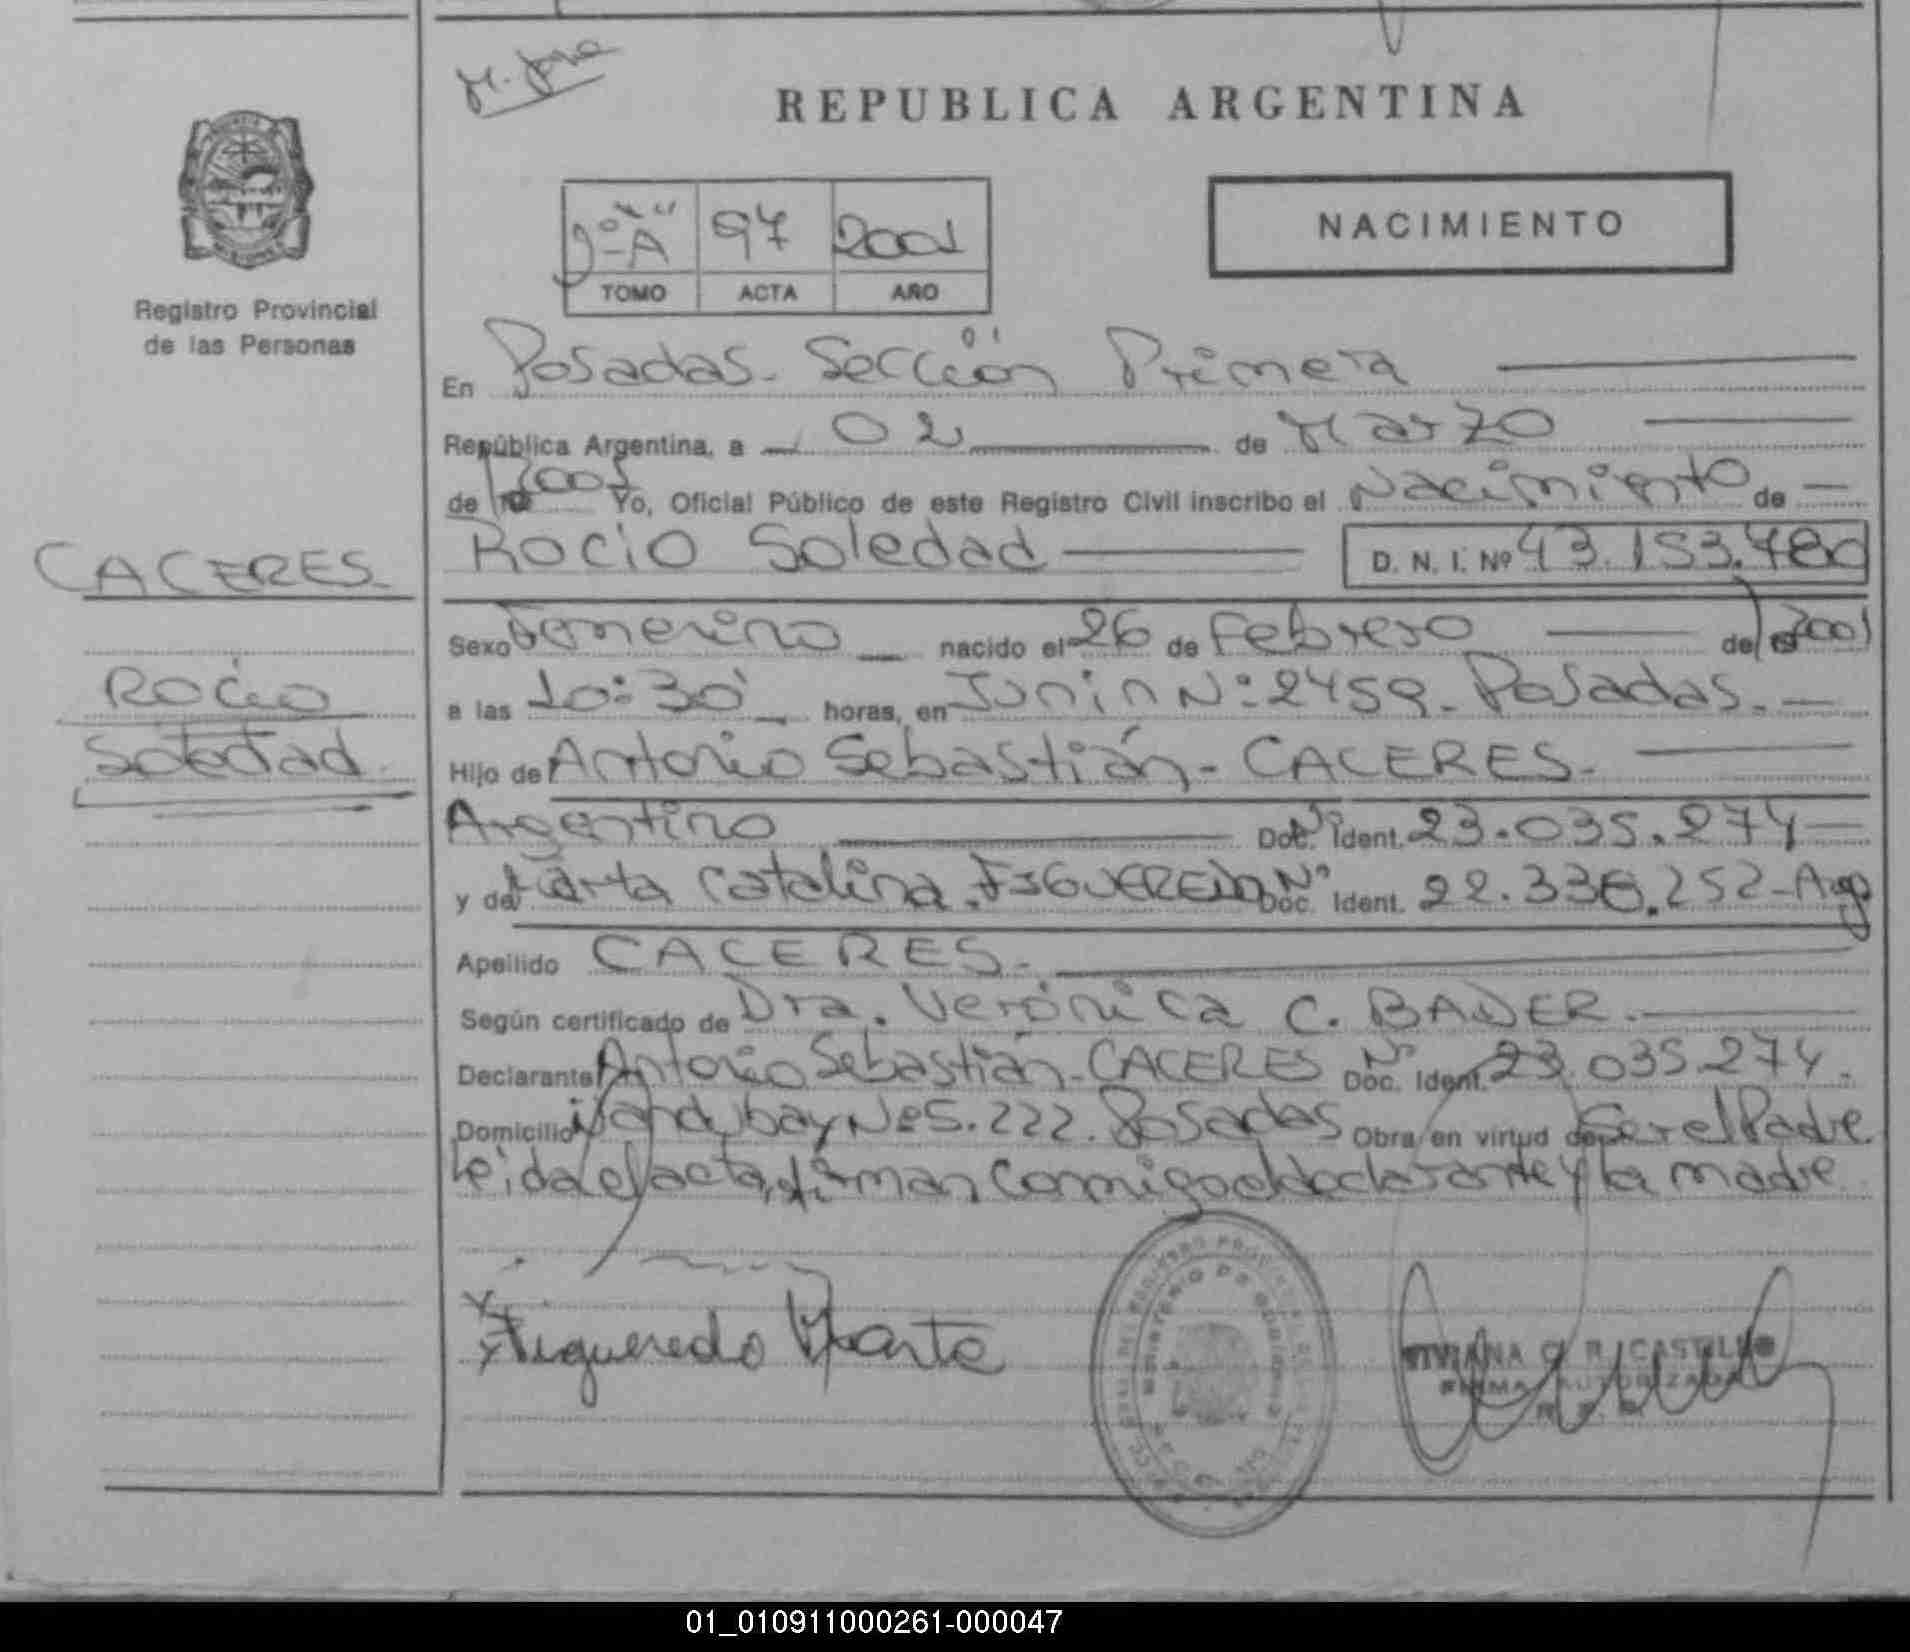 M. José
REPUBLICA ARGENTINA
"A" 97 2001
TOMO ACTA AÑO
NACIMIENTO
Registro Provincial
de las Personas
En Posadas. Sección Primera
República Argentina, a 02 de Marzo
de 2001 Yo, Oficial Público de este Registro Civil inscribo el Nacimiento de
Rocio Soledad D. N. I. Nº 43.153.780
CACERES.
Rocio
Soledad
Sexo Femenino nacido el 26 de Febrero de 2001
a las 10:30 horas, en Junin Nº 2459. Posadas.
Hijo de Antonio Sebastián - CACERES.
Argentino Nº Doc. Ident. 23.035.274
y de Marta Catalina. FIGUEREDO Nº Doc. Ident. 22.336.252 - Arg
Apellido CACERES.
Según certificado de Dra. Verónica C. BADER.
Declarante Antonio Sebastián - CACERES Nº Doc. Ident. 23.035.274.
Domicilio Ñandubay Nº 5.222. Posadas Obra en virtud de Ser el Padre
Leida el acta, firman conmigo el declarante y la madre
Figueredo Marta
VIVIANA C. R. CASTILLO
FIRMA AUTORIZADA
R. P. P.
01_010911000261-000047